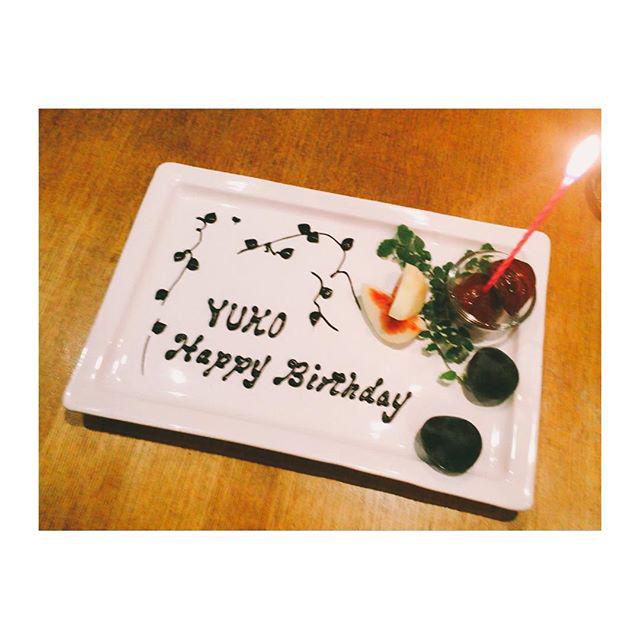 YUKO
Happy Birthday